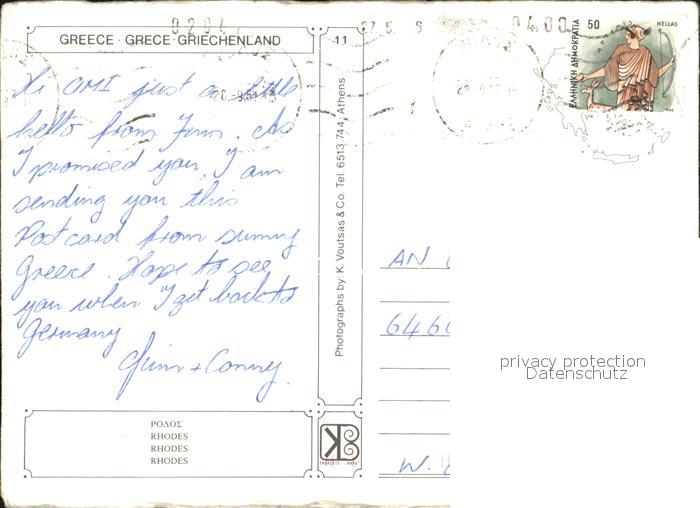 GREECE · GRECE · GRIECHENLAND
11
50
HELLAS
ΕΛΛΗΝΙΚΗ ΔΗΜΟΚΡΑΤΙΑ
Hi OMI just a little
hello from Jim. As
I promised you, I am
sending you this
Postcard from sunny
Greece. Hope to see
you when I get back to
Germany
Jim + Conny.
Photographs by: K. Voutsas & Co. Tel. 6513.744, Athens
AN
646
W.
privacy protection
Datenschutz
ΡΟΔΟΣ
RHODES
RHODES
RHODES